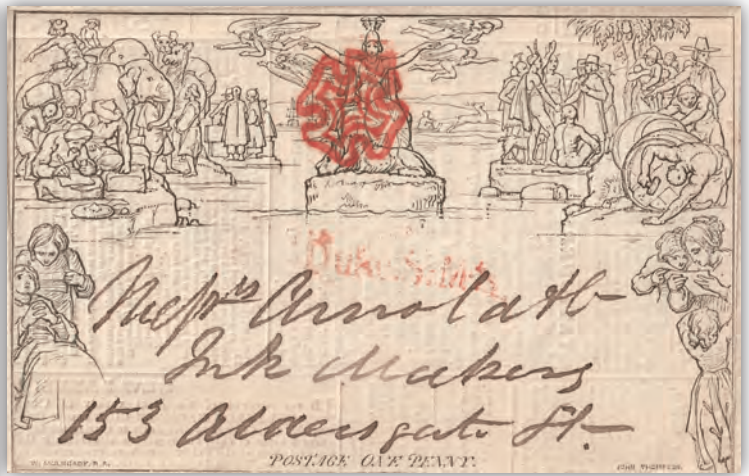 Messrs Arnold & Co
Ink Makers
153 Aldersgate St.
W. MULREADY, R.A.
POSTAGE ONE PENNY.
JOHN THOMPSON